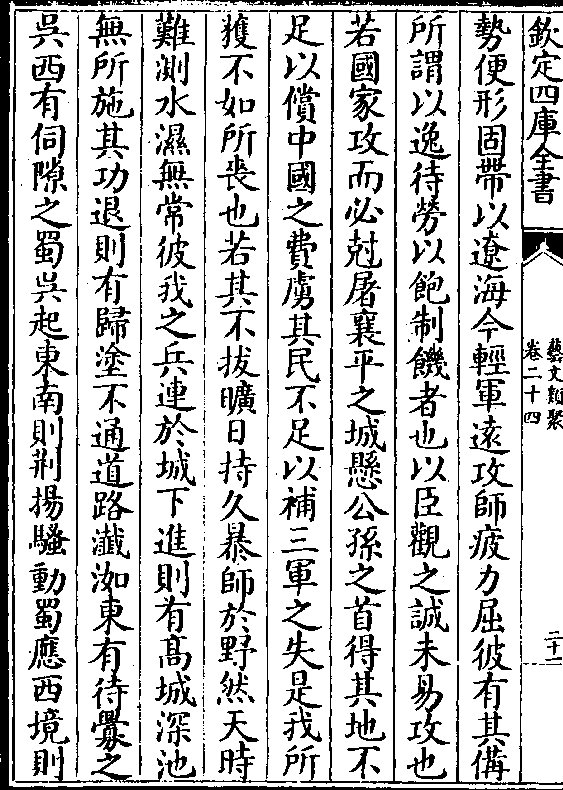 欽定四庫全書
藝文類聚
卷二十四
二十一
勢便形固帶以遼海今輕軍遠攻師疲力屈彼有其備
所謂以逸待勞以飽制饑者也以臣觀之誠未易攻也
若國家攻而必尅屠襄平之城懸公孫之首得其地不
足以償中國之費虜其民不足以補三軍之失是我所
獲不如所喪也若其不拔曠日持久暴師於野然天時
難測水濕無常彼我之兵連於城下進則有高城深池
無所施其功退則有歸塗不通道路瀸洳東有待釁之
吳西有伺隙之蜀吳起東南則荆揚騷動蜀應西境則